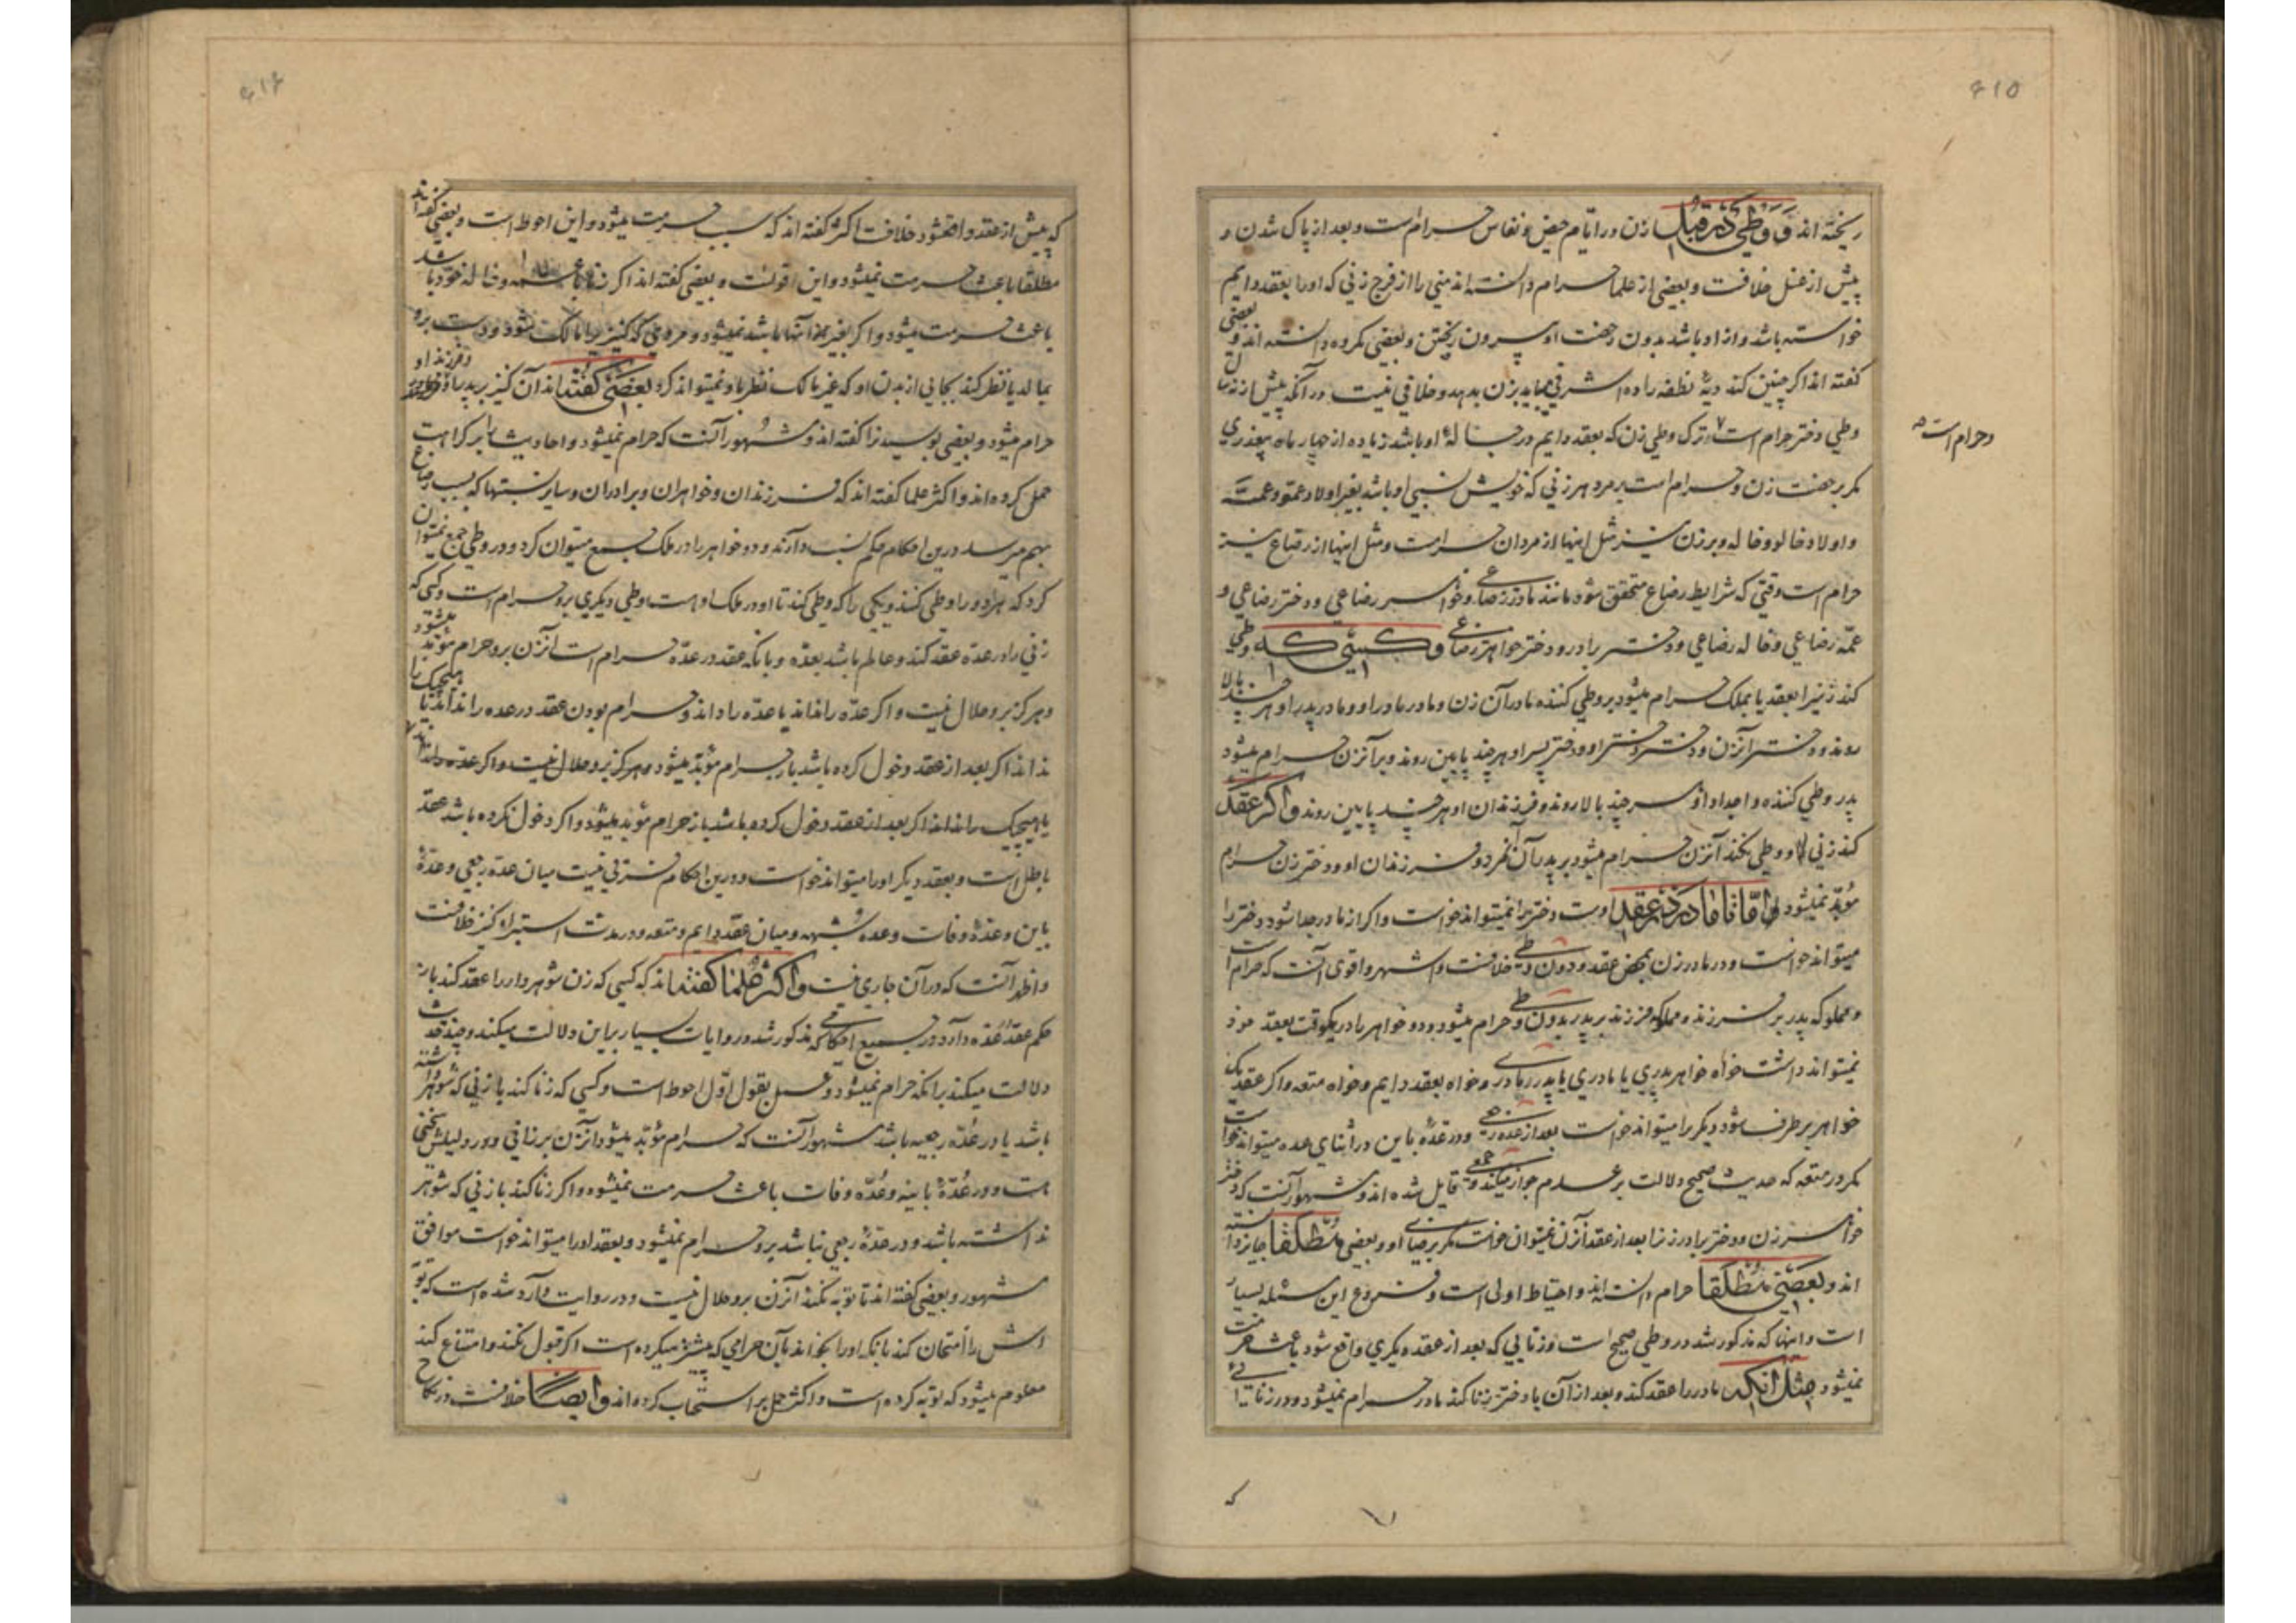 ۶۱۵
ریخته اند و وطی در قبل زن در ایّام حیض و نفاس حرام است و بعد از پاک شدن و
پیش از غسل خلافست و بعضی از علما حرام دانسته اند منی را از فرج زنی که او را بعقد دایم
خواسته باشد و ازاد باشد بدون رخصت او بیرون ریختن و بعضی مکروه دانسته اند و بعضی
کفته اند اکر چنین کند دیهٔ نطفه را ده اشرفی میباید بزن بدهد و خلافی نیست در آنکه پیش از نه سال
وطی دختر حرام است و ترک وطی زن که بعقد دایم در حبالهٔ او باشد زیاده از چهار ماه بیعذری
و حرام است
مکر برخصت زن و حرام است بر مرد هر زنی که خویش نسبی او باشد بغیر اولاد عم و عمّه
و اولاد خالو و خاله و بر زن نیز مثل اینها از مردان حرامست و مثل اینها از رضاع نیز
حرام است وقتی که شرایط رضاع متحقق شود مانند مادر رضاعی و خواهر رضاعی و دختر رضاعی و
عمّه رضاعی و خاله رضاعی و دختر برادر و دختر خواهر رضاعی و کسی که وطی
کند زنیرا بعقد یا بملک حرام میشود بر وطی کننده مادر آن زن و مادر مادر او و مادر پدر او هر چند بالا
روند و دختر آنزن و دختر دختر او و دختر پسر او هر چند پایین روند و بر آنزن حرام میشود
پدر وطی کننده و اجداد او هر چند بالا روند و فرزندان او هر چند پایین روند و اکر عقد
کند زنی را و وطی نکند آنزن حرام میشود بر پدر آن مرد و فرزندان او و دختر زن حرام
مؤبّد نمیشود امّا تا مادر در عقد اوست دختر را نمیتواند خواست و اکر از مادر جدا شود دختر را
میتواند خواست و در مادر زن بمحض عقد و دون وطی خلافست و اشهر و اقوی آنست که حرام است
و مملوکه پدر بر فرزند و مملوکه فرزند بر پدر بدون وطی حرام میشود و دو خواهر را در یکوقت بعقد خود
نمیتواند داشت خواه خواهر پدری یا مادری یا پدر مادری و خواه بعقد دایم و خواه متعه و اکر عقد یک
خواهر بر طرف شود دیکر را میتواند خواست بعد از عده رجعی و در عدّهٔ باین در اثنای عده میتواند خواست
مکر در متعه که حدیث صحیح دلالت بر عدم جواز میکند و جمعی قایل شده اند و مشهور آنست که دختر
خواهر زن و دختر برادر زنرا بعد از عقد آنزن نمیتوان خواست مکر برضای او و بعضی مطلقا جایز دانسته
اند و بعضی مطلقا حرام دانسته اند و احتیاط اولی است و فروع این مسئله بسیار
است و اینها که مذکور شد در وطی صحیح است و زنایی که بعد از عقد دیکری واقع شود باعث حرمت
نمیشود مثل انکه مادر را عقد کند و بعد از آن با دختر زنا کند مادر حرام نمیشود و در زنایی
که
۶۱۶
که پیش از عقد واقع شود خلافست اکثر کفته اند که سبب حرمت میشود و این احوط است و بعضی کفته اند
مطلقا باعث حرمت نمیشود و این اقویست و بعضی کفته اند اکر زنا با عمّه و خاله خود باشد
باعث حرمت میشود و اکر بغیر از آنها باشد نمیشود و مردی که کنیزیرا مالک شود و دست برو
بمالد یا نظر کند بجایی از بدن او که غیر مالک نظر باو نمیتواند کرد بعضی کفته اند آن کنیز بر پدر او و فرزند او
حرام میشود و بعضی بوسیدنرا کفته اند و مشهور آنست که حرام نمیشود و احادیث را بر کراهت
حمل کرده اند و اکثر علما کفته اند که فرزندان و خواهران و برادران و سایر نسبتها که بسبب رضاع
بهم میرسد درین احکام حکم نسب دارند و دو خواهر را در ملک جمع میتوان کرد و در وطی جمع نمیتوان
کرد که هر دو را وطی کنند و یکی را که وطی کند تا او در ملک اوست وطی دیکری برو حرام است و کسی که
زنی را در عدّه عقد کند و عالم باشد بعدّه و بانکه عقد در عدّه حرام است آنزن برو حرام مؤبّد میشود
و هرکز برو حلال نیست و اکر عدّه را نداند یا عدّه را داند و حرام بودن عقد در عده را نداند یا هیچیک را
نداند اکر بعد از عقد دخول کرده باشد باز حرام مؤبّد میشود و هرکز برو حلال نیست و اکر عدّه را نداند
یا هیچیک را نداند اکر بعد از عقد دخول کرده باشد باز حرام مؤبد میشود و اکر دخول نکرده باشد عقد
باطل است و بعقد دیکر او را میتواند خواست و درین احکام فرقی نیست میان عدّه رجعی و عدّهٔ
باین و عدّهٔ وفات و عده شبهه و میان عقد دایم و متعه و در مدت استبراء کنیز خلافست
و اظهر آنست که در آن جاری نیست و اکثر علما کفته اند که کسی که زن شوهردار را عقد کند باز
حکم عقد عدّه دارد در جمیع احکامی که مذکور شد و روایات بسیار براین دلالت میکند و چند حدیث
دلالت میکند برانکه حرام نمیشود و عمل بقول اوّل احوط است و کسی که زنا کند با زنی که شوهر داشته
باشد یا در عدّه رجعیه باشد مشهور آنست که حرام مؤبّد میشود آنزن بر زانی و در دلیلش سخنی
هست و در عُدّهٔ باینه و عُدّه وفات باعث حرمت نمیشود و اکر زنا کند با زنی که شوهر
نداشته باشد و در عدّهٔ رجعی نباشد برو حرام نمیشود و بعقد او را میتواند خواست موافق
مشهور و بعضی کفته اند تا توبه نکند آنزن برو حلال نیست و در روایت وارد شده است که توبه
اش را امتحان کند بانکه او را بخواند بآن حرامی که پیشتر میکرده است اکر قبول نکند و امتناع کند
معلوم میشود که توبه کرده است و اکثر حمل بر استحباب کرده اند و ایضا خلافست در نکاح